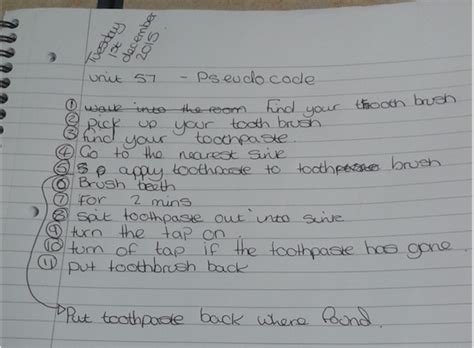 Tuesday
1st
december
2015
unit 57 - Pseudocode
① walk into the room Find your tooth brush
② pick up your tooth brush
③ find your toothpaste.
④ Go to the nearest sink
⑤ appy toothpaste to tooth brush
⑥ Brush teeth
⑦ for 2 mins
⑧ spit toothpaste out into sink
⑨ turn the tap on.
⑩ turn of tap if the toothpaste has gone.
⑪ put toothbrush back
Put toothpaste back where found.